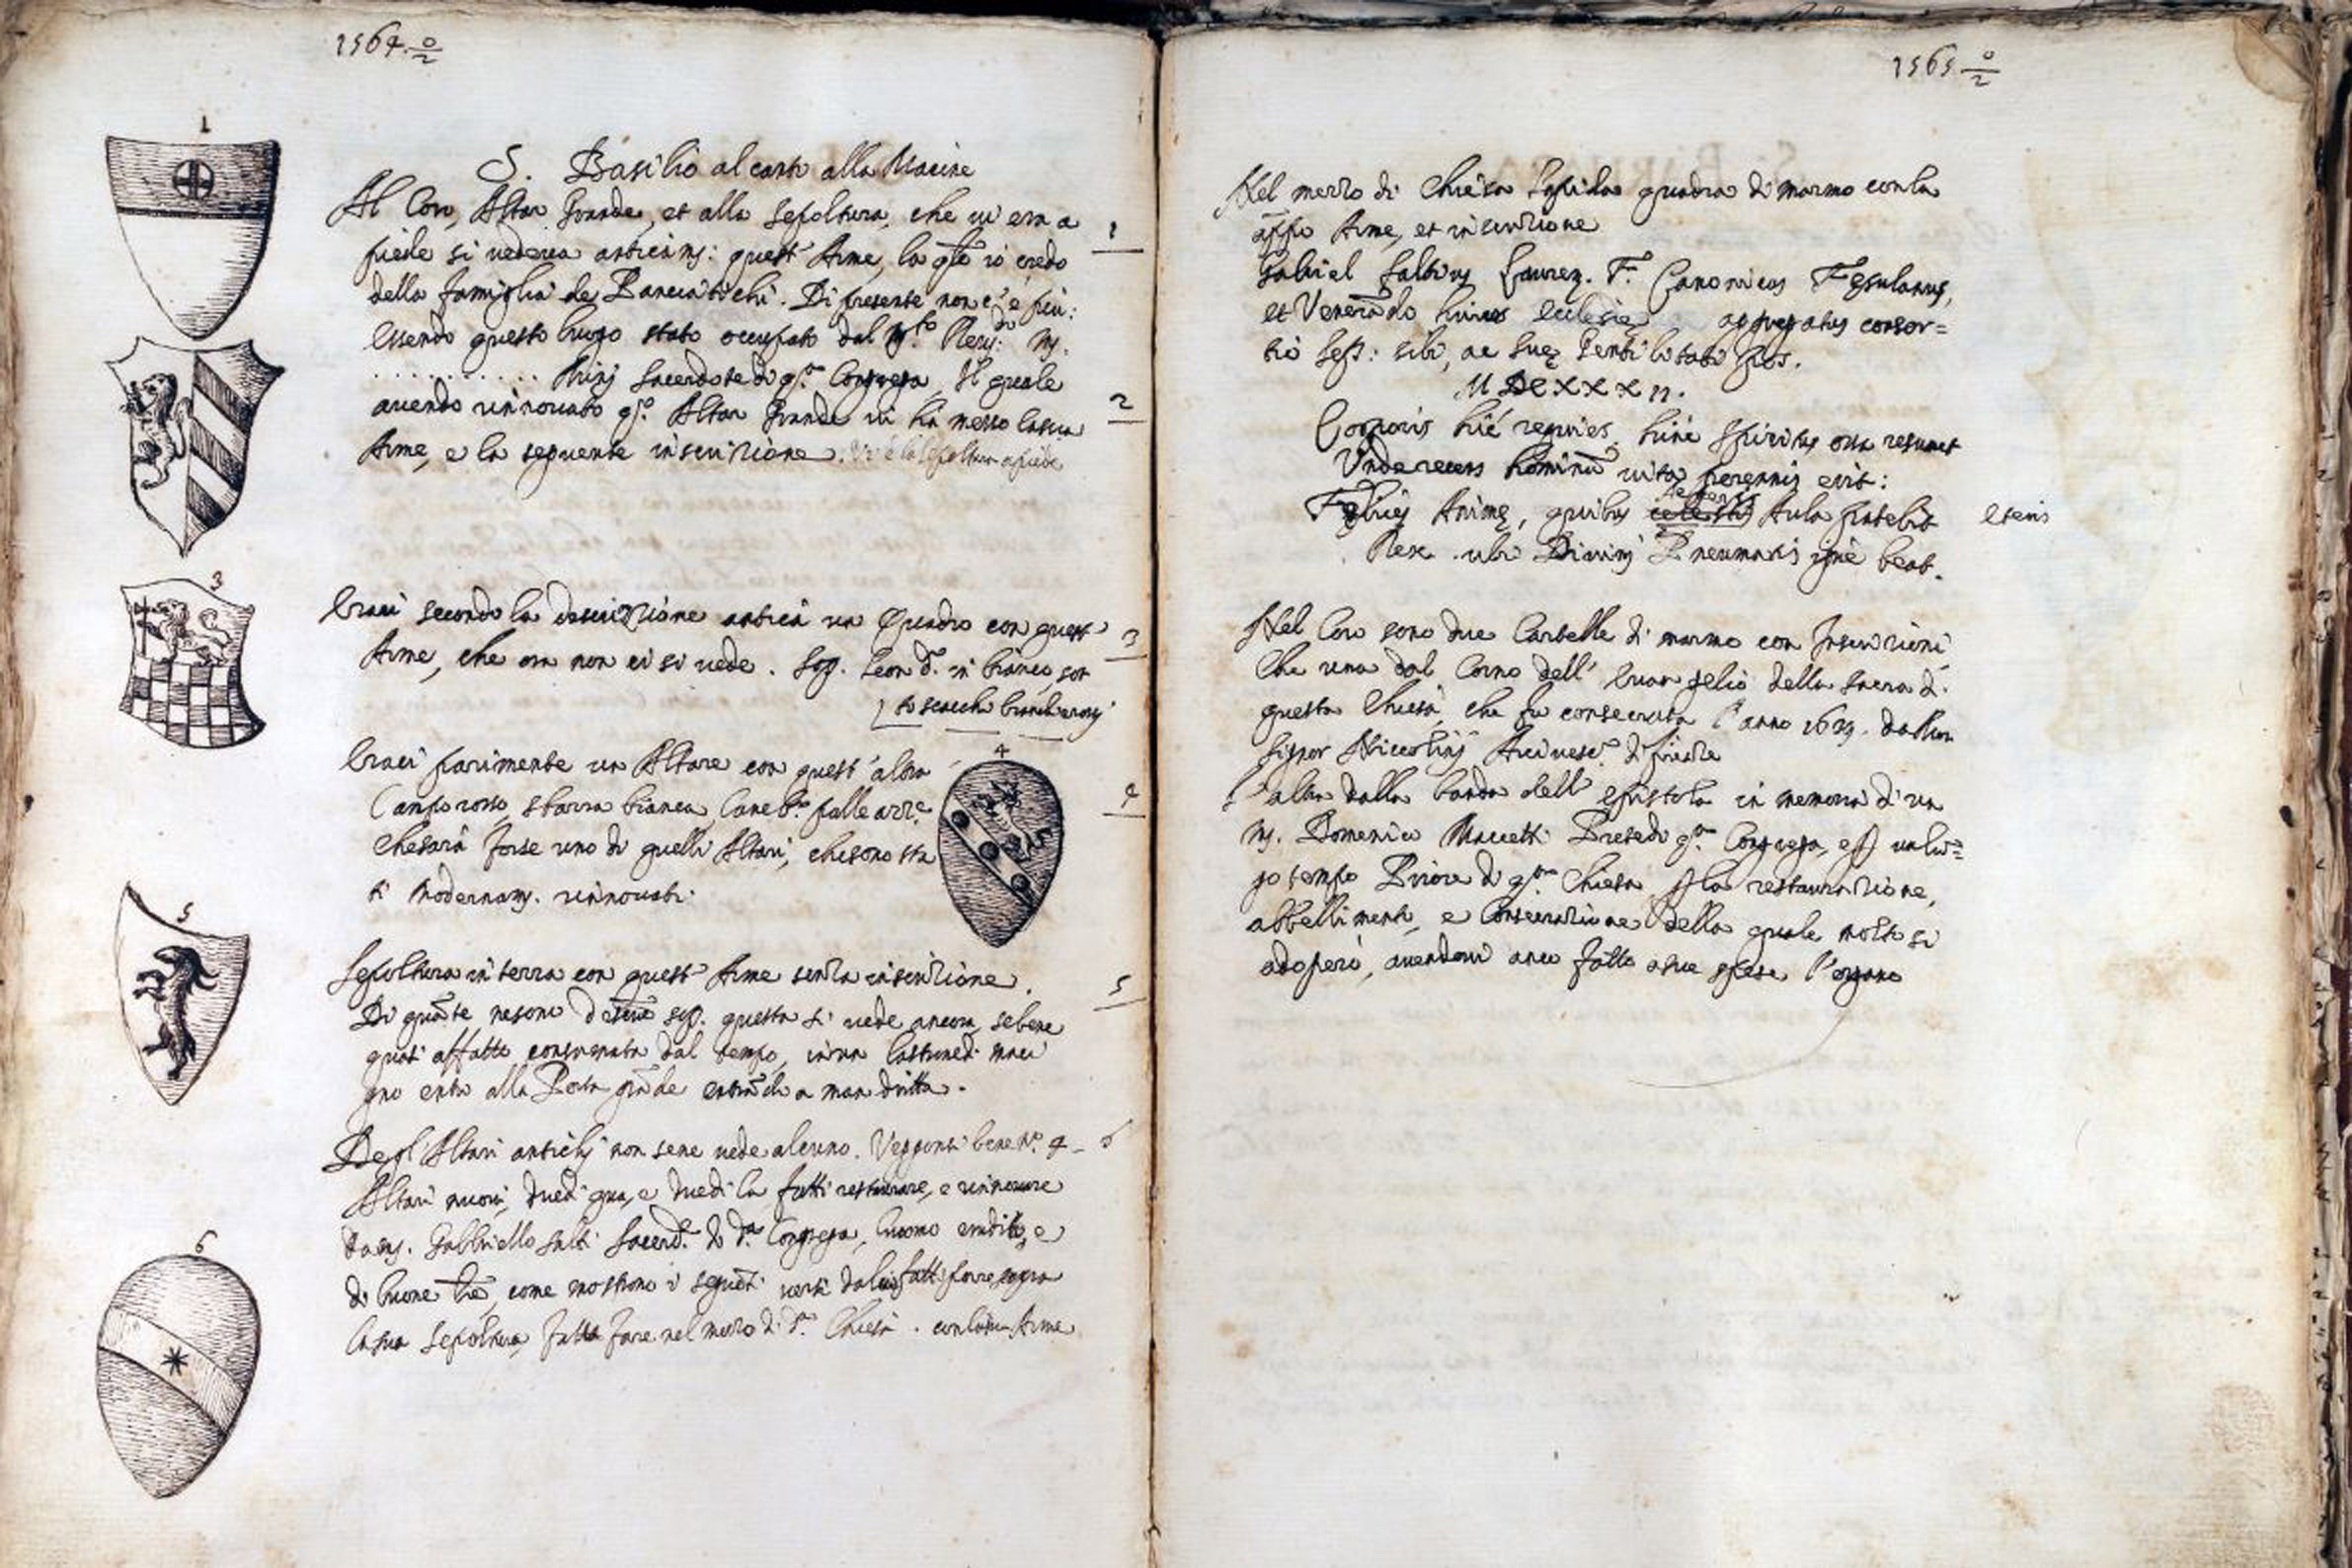 1564. 0/2
1
S. Basilio al canto alla Macine
Al Coro, Altar Grande, et alla sepoltura, che vi era a
piede si vedeva anticam: quest' Arme, la qle io credo
della famiglia de Panciatichi. Di presente non c'è più:
essendo questo luogo stato occupato dal M.to Reu: M.
. . . . . . . . . . . Sacerdote di q.ta Congrega, Il quale
avendo rinnovato q.o Altar Grande vi hà messo la sua
Arme, e la seguente inscrizione. Vi è la sepoltura a piede
1
2
3
Eravi secondo la descrizione antica un Quadro con quest'
Arme, che ora non ci si vede. Sop. Leon d. in bianco, sot
to scacchi bianchi e rossi
3
Eravi parimente un Altare con quest' altra
Campo rosso, sbarra bianca, Cane b.co palle azz.e
che sarà forse uno di quelli Altari, che sono sta
ti modernam. rinnovati
4
4
5
Sepoltura in terra con quest' Arme senza inscrizione.
Di quante nesono sop. questa si vede ancora, sebene
quasi affatto consumata dal tempo, in un lastrone di maci
gno entro alla Porta grãde entrãdo a man dritta.
5
Degl' Altari antichi non sene vede alcuno. Veggonsi bene n.o 4
Altari nuovi, due di qua, e due di la fatti restaurare, e rinnovare
da m. Gabbriello Salbi Sacerd. di d.a Congrega, huomo erudito, e
di buone lre, come mostrono i seguẽti versi da lui fatti porre sopra
la sua sepoltura, fatta fare nel mezzo di d.a Chiesa. con la sua Arme
6
6
1565. 0/2
Nel mezzo di Chiesa lapida quadra di marmo con la
Arme, et inscrizione
Gabriel Salbius Lauren. F. Canonicus Fesulanus,
et Venerãdo huius Ecclesię aggregatus consor=
tio sibi, ac suę Gentilitati pos.
MDCXXXII.
Corporis hic requies, hinc spiritus ossa resumet
Unde recens hominũ vita perennis erit:
Felices Animę, quibus Aula patebit
Rex ubi Divini Pneumatis igne beat.
Nel Coro sono due Cartelle di marmo con Inscrizioni
Che una dal Corno dell' Euangelio della Sacra di
questa Chiesa, che fu consecrata l'anno 1639. da Mon
signor Niccolinj Arcivesc. di Firẽze
L'altra dalla banda dell' epistola in memoria di un
M. Domenico Macetti Prete di q.ta Congrega, e
tempo Priore di q.ta Chiesa la restaurazione,
abbellimenti, e Consecrazione della quale molto si
adoperò, avendovi anco fatto a sue spese l'organo